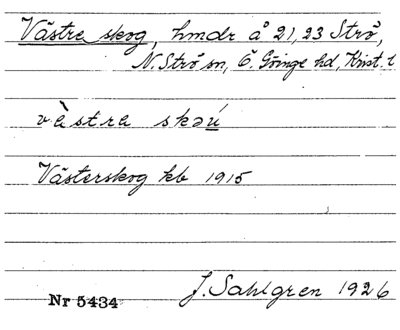 Västre skog, hmdr å 21, 23 Strö,
N. Strö sn, Ö. Göinge hd, Krist. l
vàstra skǝú
Västerskog kb 1915
J. Sahlgren 1926
Nr 5434